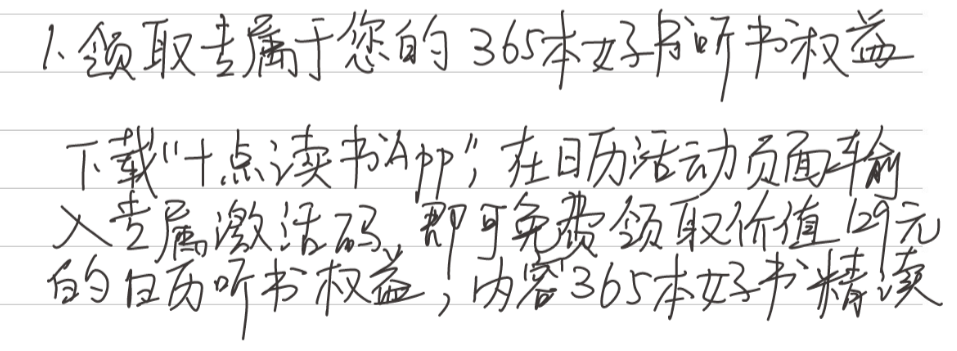 1.领取专属于您的365本好书听书权益
下载“十点读书App”，在日历活动页面输
入专属激活码，即可免费领取价值129元
的日历听书权益，内容365本好书精读